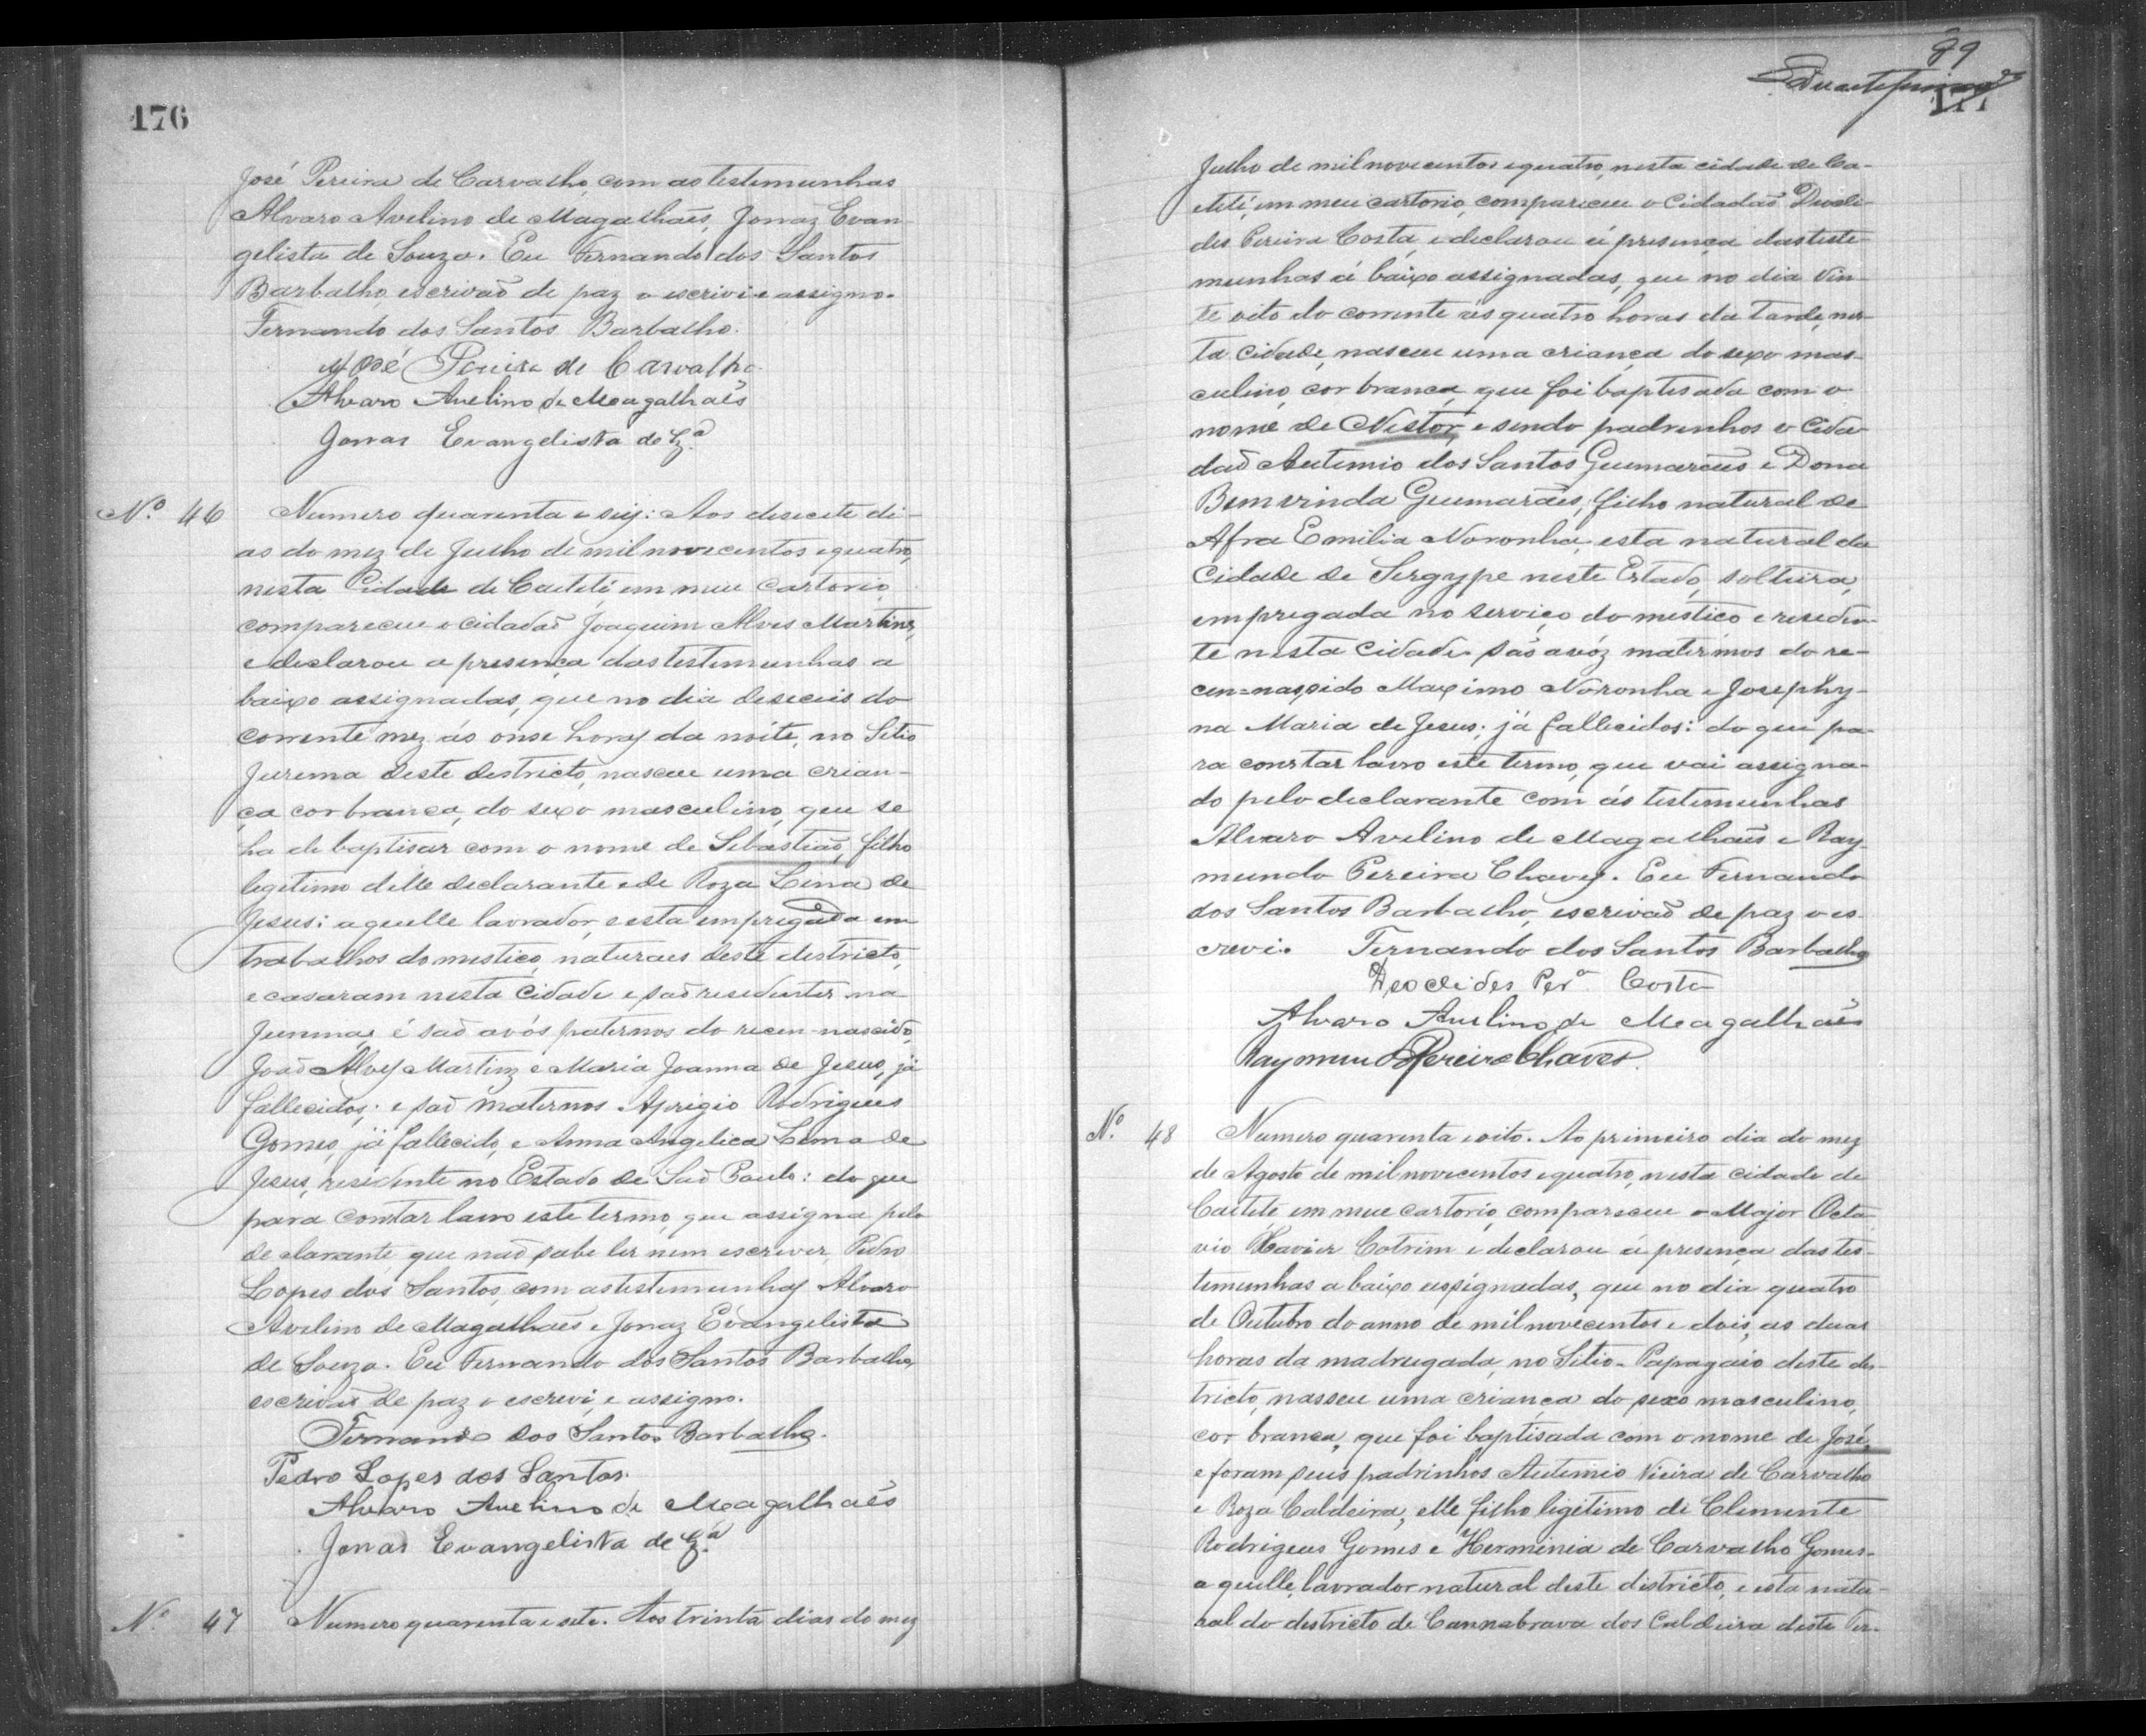 176
José Pereira de Carvalho, com as testemunhas
Alvaro Avelino de Magalhães, Jonaz Evan-
gelista de Souza. Eu Fernando dos Santos
Barbalho, escrivaõ de paz o escrivi e assigno.
Fernando dos Santos Barbalho.
José Pereira de Carvalho
Alvaro Avelino de Magalhaẽs
Jonas Evangelista de Sz.ª
Nº 46 Numero quarenta e seis: Aos desecete di-
as do mez de Julho de mil novecentos e quatro,
nesta Cidade de Caeteté em meu Cartorio,
compareceu o cidadaõ Joaquim Alves Martins,
e declarou a presença das testemunhas a
baixo assignadas, que no dia deseceis do
corrente mez ás onse horas da noite, no Sitio
Jurema deste destricto, nasceu uma crian-
ça cor branca, do sexo masculino, que se
ha de baptisar com o nome de Sebastiaõ, filho
legitimo delle declarante e de Roza Lina de
Jesus: aquelle lavrador, e esta empregada em
trabalhos domestico, naturaes deste destricto,
e casaram nesta Cidade e saõ residentes na
Jurema, é saõ avós paternos do recen-nascido,
Joaõ Alves Martinz e Maria Joanna de Jesus, já
fallecidos; e saõ maternos Aprigio Rodrigues
Gomes, já fallecido, e Anna Angelica Lima de
Jesus, residente no Estado de Saõ Paulo: do que
para constar lavro este termo, que assigna pelo
declarante, que naõ sabe ler nem escrever, Pedro
Lopes dos Santos, com as testemunhas Alvaro
Avelino de Magalhaẽs e Jonaz Evangelista
de Souza. Eu Fernando dos Santos Barbalho,
escrivaõ de paz o escrevi, e assigno.
Fernando dos Santos Barbalho.
Pedro Lopes dos Santos.
Alvaro Avelino de Magalhaẽs
Jonas Evangelista de Sz.ª
Nº 47 Numero quarenta e sete. Aos trinta dias do mez
89
177
Julho de mil novecentos e quatro, nesta cidade de Ca-
eteté, em meu cartorio, compareceu o Cidadaõ Deocli-
des Pereira Costa, e declarou á presença das teste-
munhas á baixo assignadas, que no dia vin-
te oito do corrente ás quatro horas da tarde, nes-
ta cidade, nasceu uma criança do sexo mas-
culino, cor branca, que foi baptisada com o
nome de Nestor, e sendo padrinhos o Cida-
daõ Autemio dos Santos Guimarães e Dona
Bemvinda Guimarães, filho natural de
Afra Emilia Noronha, esta natural da
Cidade de Sergype neste Estado, solteira,
empregada no serviço domestico e residen-
te nesta Cidade saõ avóz maternos do re-
cen=nascido Maximo Noronha e Josephy-
na Maria de Jesus; já fallecidos: do que pa-
ra constar lavro este termo, que vai assigna-
do pelo declarante com ás testemunhas
Alvaro Avelino de Magalhaẽs e Ray-
mundo Pereira Chaves. Eu Fernando
dos Santos Barbalho, escrivaõ de paz o es-
crevi. Fernando dos Santos Barbalho
Deoclides Perª Costa
Alvaro Avelino de Magalhaẽs
Raymundo Pereira Chaves.
Nº 48 Numero quarenta e oito. Ao primeiro dia do mez
de Agosto de mil novecentos e quatro, nesta cidade de
Caeteté em meu cartorio, compareceu o Major Octa-
vio Xavier Cotrim e declarou á presença das tes-
temunhas a baixo assignadas, que no dia quatro
de Outubro do anno de mil novecentos e dois, as duas
horas da madrugada, no Sitio-Papagaio deste des-
tricto, nasseu uma criança do sexo masculino,
cor branca, que foi baptisada com o nome de José,
e foram seus padrinhos Autemio Vieira de Carvalho
e Roza Caldeira, elle filho legitimo de Clemente
Rodrigues Gomes e Herminia de Carvalho Gomes-
aquelle, lavrador natural deste districto, e esta natu-
ral do destricto de Cannabrava dos Caldeira deste Ter-